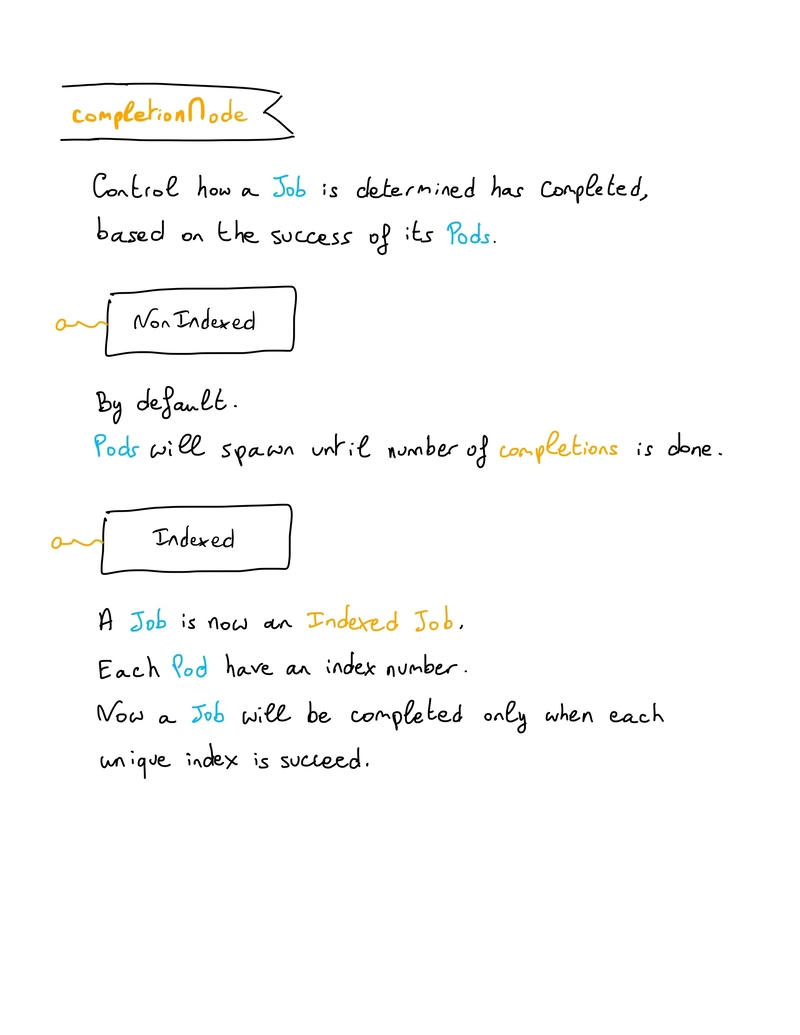 completionMode
Control how a Job is determined has completed,
based on the success of its Pods.
NonIndexed
By default.
Pods will spawn until number of completions is done.
Indexed
A Job is now an Indexed Job.
Each Pod have an index number.
Now a Job will be completed only when each
unique index is succeed.